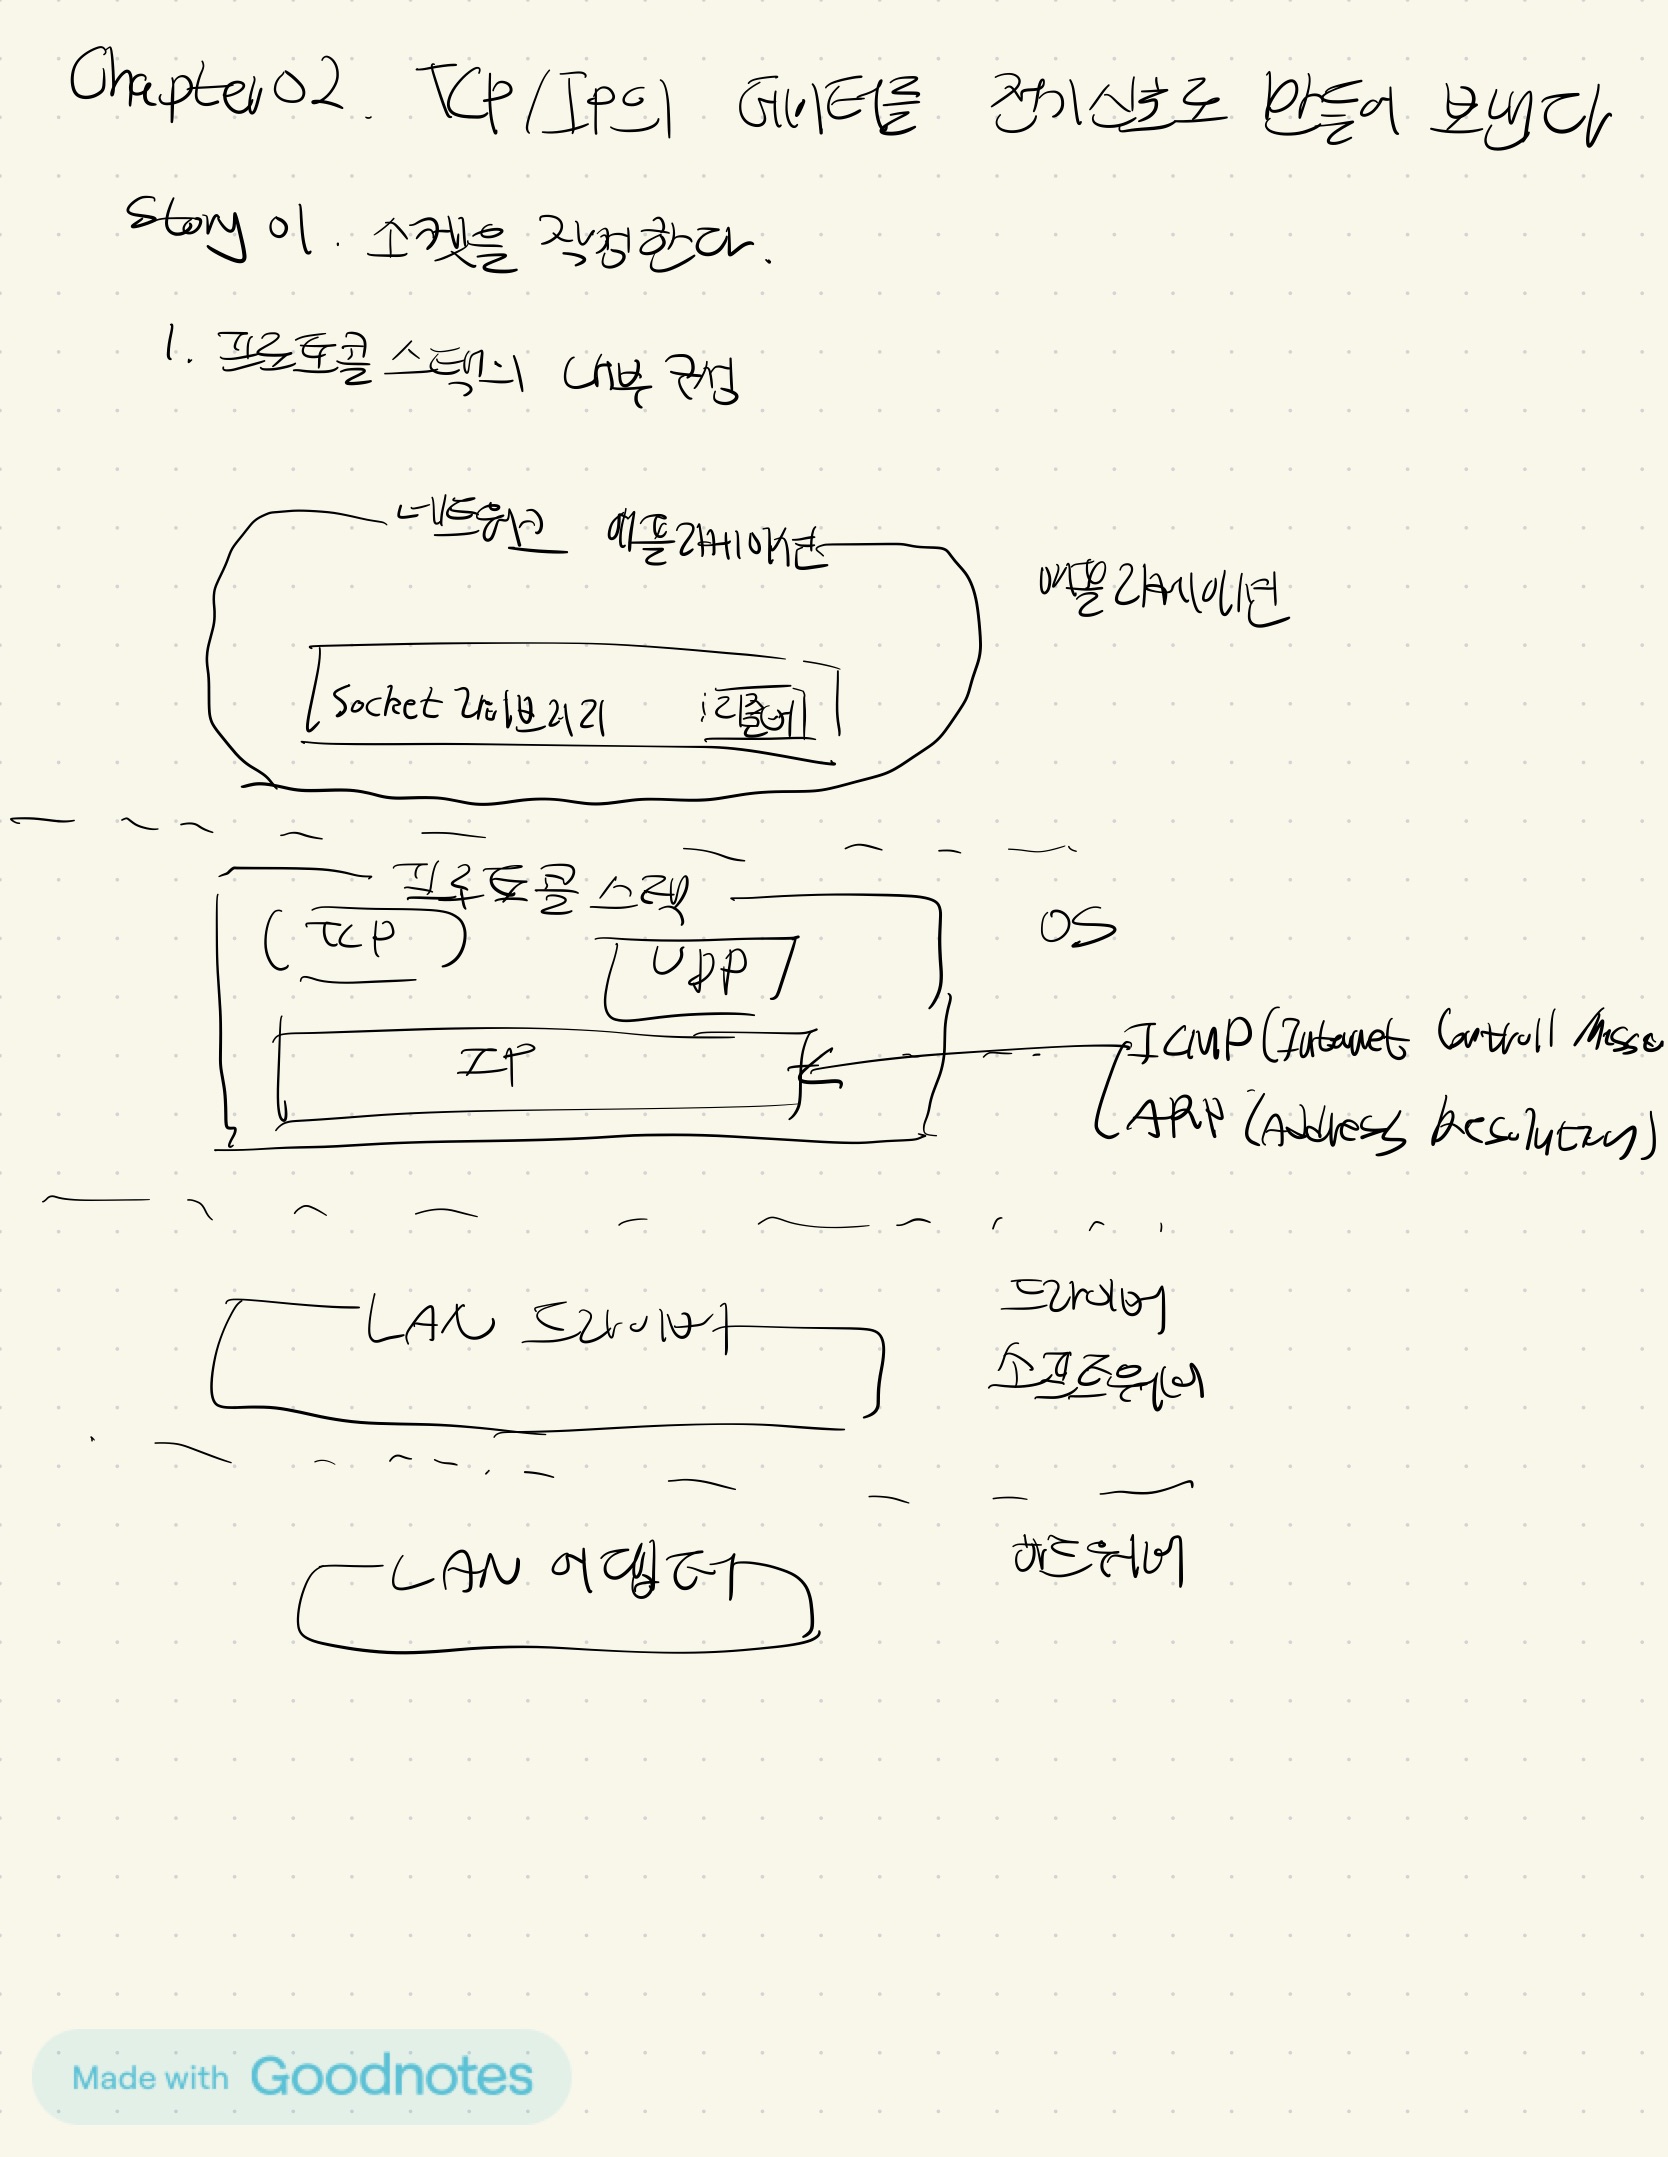 Chapter 02. TCP/IP의 데이터를 전기신호로 만들어 보낸다
Story 01. 소켓을 작성한다.
1. 프로토콜 스택의 내부 구성
네트워크 애플리케이션
애플리케이션
Socket 라이브러리 리졸버
프로토콜 스택
TCP
UDP
OS
IP
ICMP (Internet Controll Messa
ARP (Address Resolution)
LAN 드라이버
드라이버
소프트웨어
LAN 어댑터
하드웨어
Made with Goodnotes